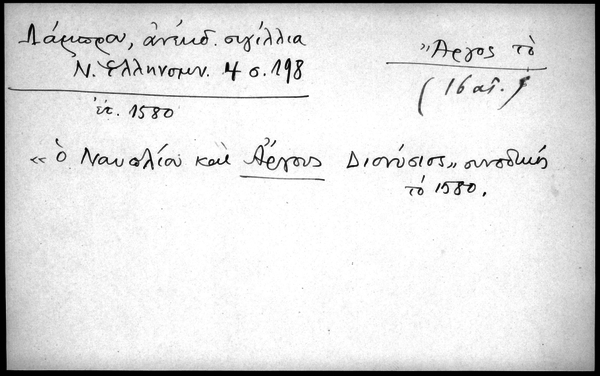 Λάμπρου, ἀνέκδ. σιγίλλια
Ν. Ἑλληνομν. 4 σ. 198
Ἄργος τὸ
(16 αἰ.)
ἔτ. 1580
«ὁ Ναυπλίου καὶ Ἄργους Διονύσιος» συνοδικῶς
τὸ 1580.